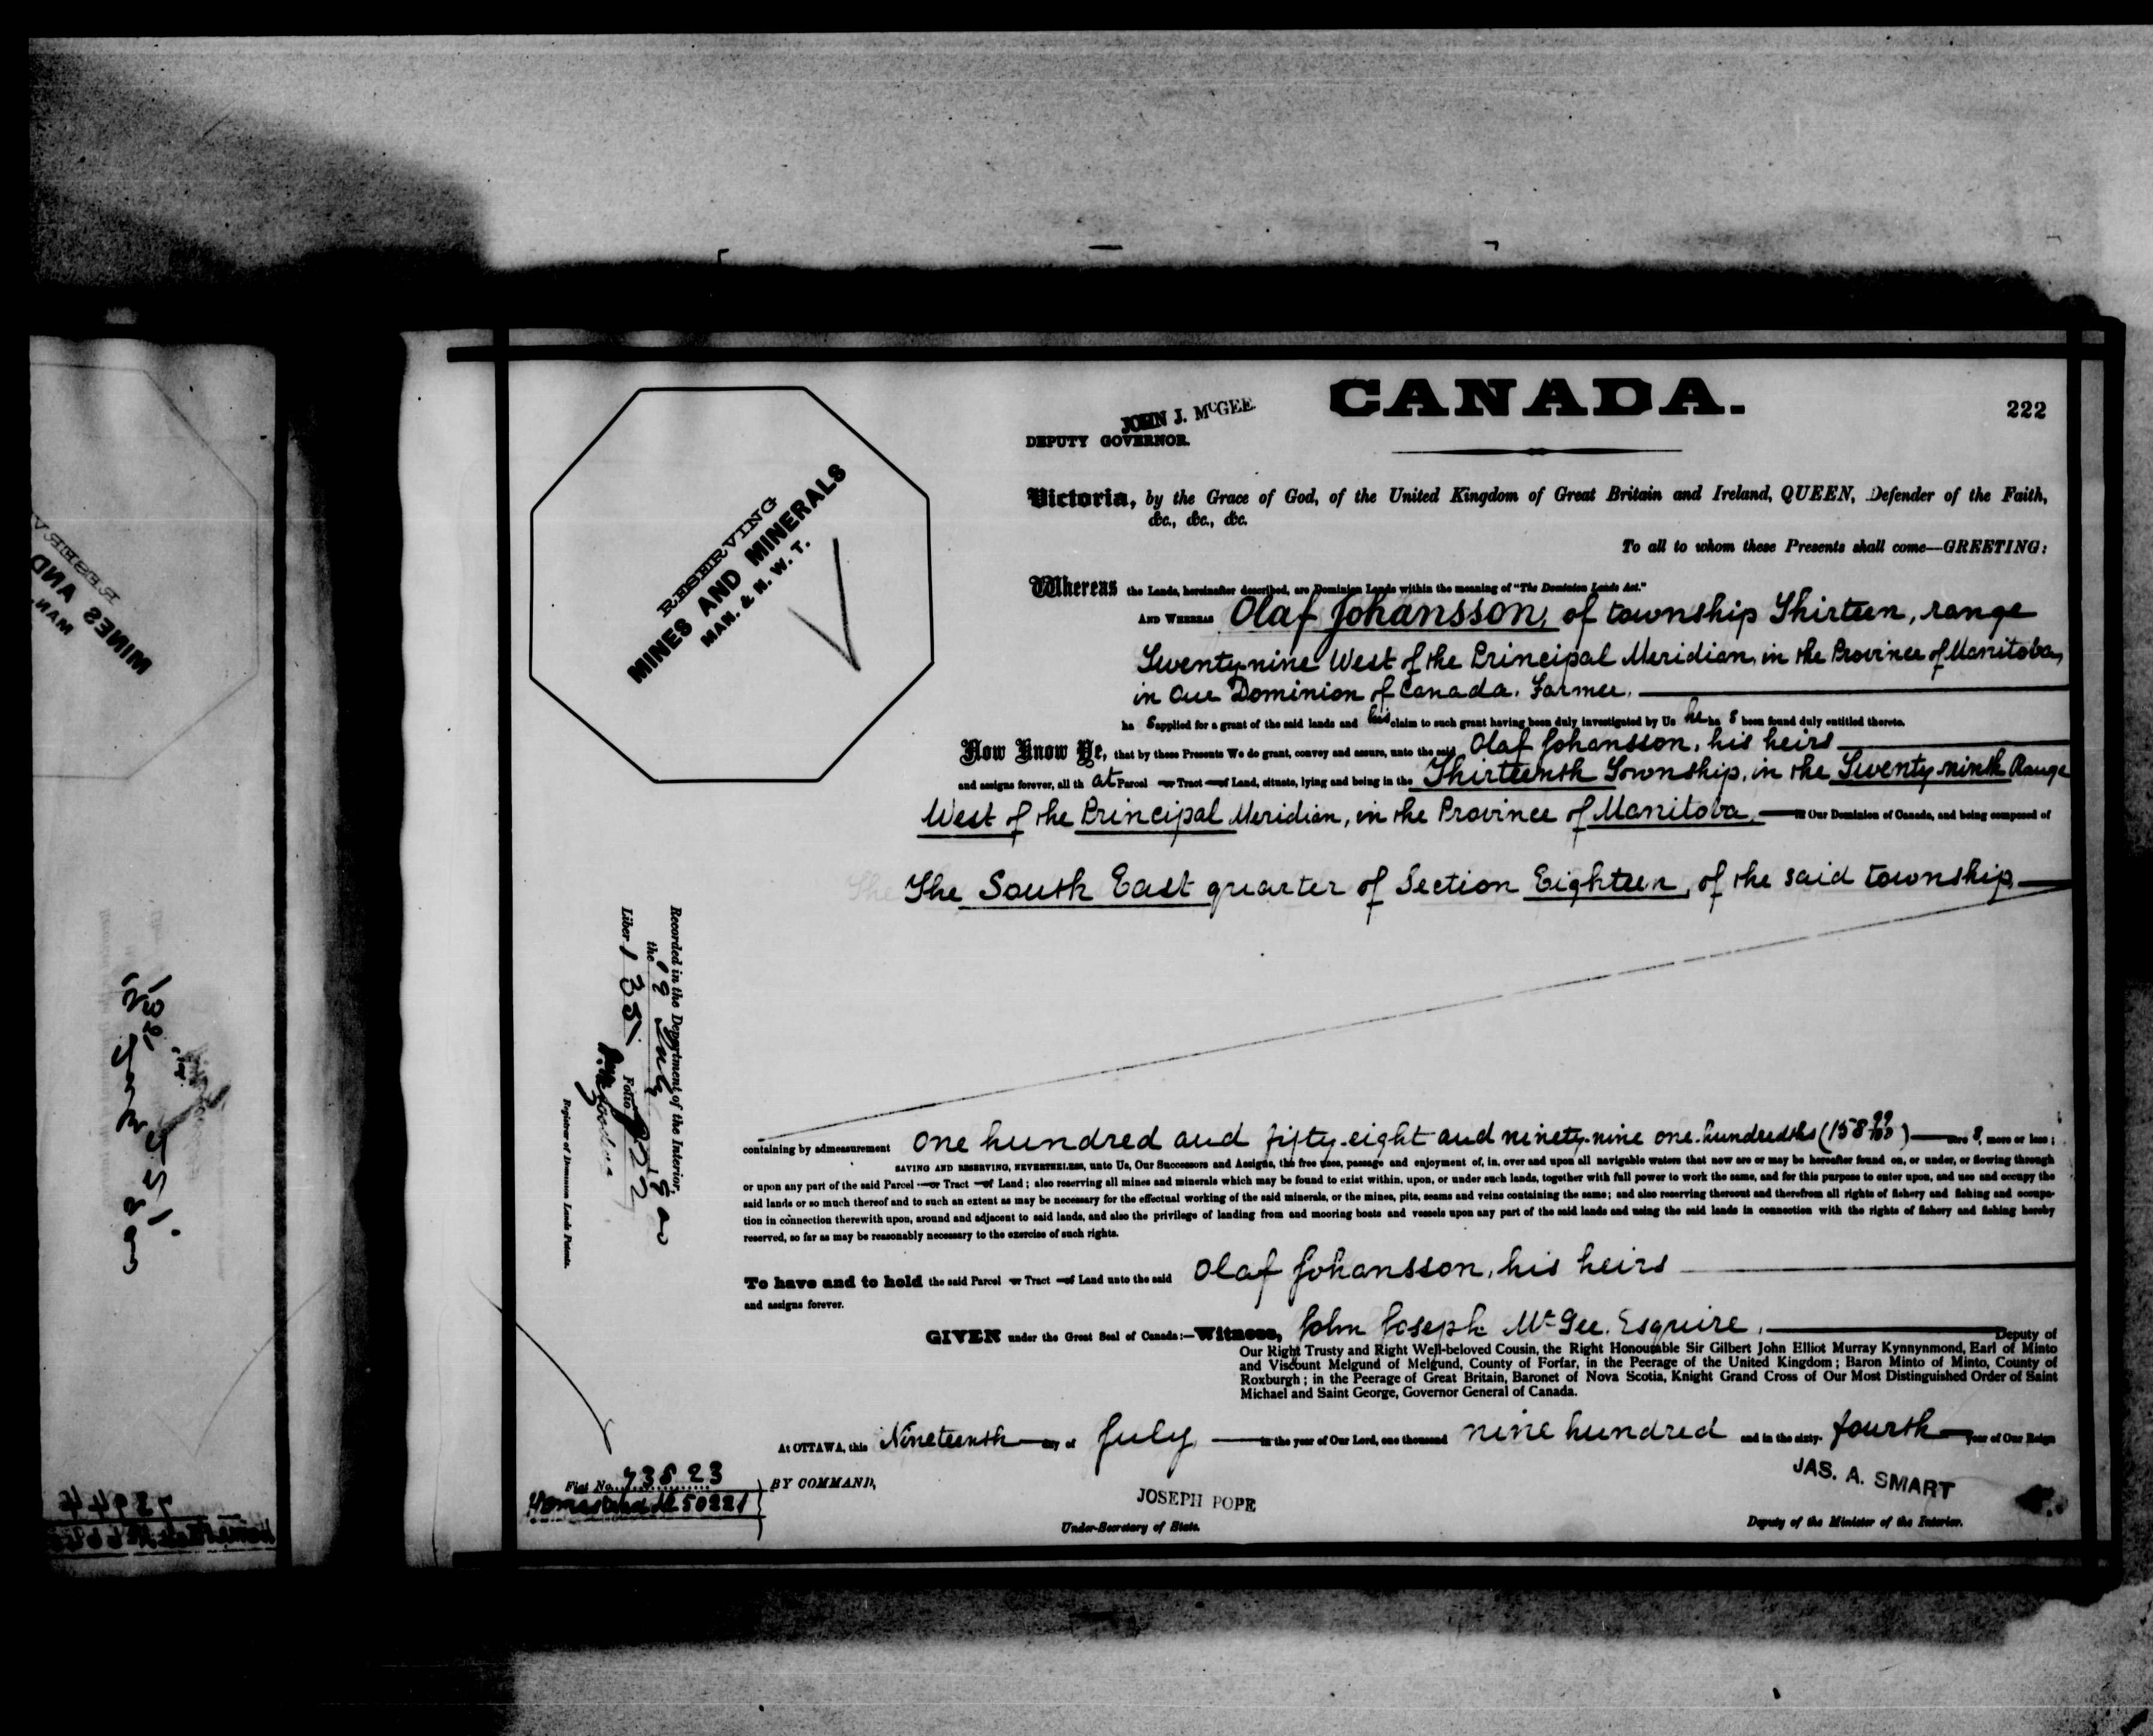 CANADA.
222
JOHN J. McGEE.
DEPUTY GOVERNOR.
RESERVING
MINES AND MINERALS
MAN. & N. W. T.
Victoria, by the Grace of God, of the United Kingdom of Great Britain and Ireland, QUEEN, Defender of the Faith,
&c., &c., &c.
To all to whom these Presents shall come—GREETING:
Whereas the Lands, hereinafter described, are Dominion Lands within the meaning of "The Dominion Lands Act."
AND WHEREAS Olaf Johansson, of township Thirteen, range
Twenty-nine West of the Principal Meridian, in the Province of Manitoba,
in Our Dominion of Canada. Farmer.
ha s applied for a grant of the said lands and his claim to such grant having been duly investigated by Us he ha s been found duly entitled thereto.
Now Know Ye, that by these Presents We do grant, convey and assure, unto the said Olaf Johansson, his heirs
and assigns forever, all th at Parcel or Tract of Land, situate, lying and being in the Thirteenth Township, in the Twenty-ninth Range
West of the Principal Meridian, in the Province of Manitoba, in Our Dominion of Canada, and being composed of
The South East quarter of Section Eighteen, of the said township
containing by admeasurement one hundred and fifty-eight and ninety-nine one-hundredths (158 99/100) acre s, more or less;
SAVING AND RESERVING, NEVERTHELESS, unto Us, Our Successors and Assigns, the free uses, passage and enjoyment of, in, over and upon all navigable waters that now are or may be hereafter found on, or under, or flowing through
or upon any part of the said Parcel or Tract of Land; also reserving all mines and minerals which may be found to exist within, upon, or under such lands, together with full power to work the same, and for this purpose to enter upon, and use and occupy the
said lands or so much thereof and to such an extent as may be necessary for the effectual working of the said minerals, or the mines, pits, seams and veins containing the same; and also reserving thereout and therefrom all rights of fishery and fishing and occupa-
tion in connection therewith upon, around and adjacent to said lands, and also the privilege of landing from and mooring boats and vessels upon any part of the said lands and using the said lands in connection with the rights of fishery and fishing hereby
reserved, so far as may be reasonably necessary to the exercise of such rights.
To have and to hold the said Parcel or Tract of Land unto the said Olaf Johansson, his heirs
and assigns forever.
GIVEN under the Great Seal of Canada:—Witness, John Joseph McGee, Esquire, Deputy of
Our Right Trusty and Right Well-beloved Cousin, the Right Honourable Sir Gilbert John Elliot Murray Kynnynmond, Earl of Minto
and Viscount Melgund of Melgund, County of Forfar, in the Peerage of the United Kingdom; Baron Minto of Minto, County of
Roxburgh; in the Peerage of Great Britain, Baronet of Nova Scotia, Knight Grand Cross of Our Most Distinguished Order of Saint
Michael and Saint George, Governor General of Canada.
At OTTAWA, this Nineteenth day of July in the year of Our Lord, one thousand nine hundred and in the sixty- fourth year of Our Reign
BY COMMAND,
JOSEPH POPE
Under-Secretary of State.
JAS. A. SMART
Deputy of the Minister of the Interior.
Fiat No. 73823
Homestead 50221
Recorded in the Department of the Interior,
the 19 July
Liber 135 Folio 222
Registrar of Dominion Lands Patents.
RESERV
MINES AND
MAN.